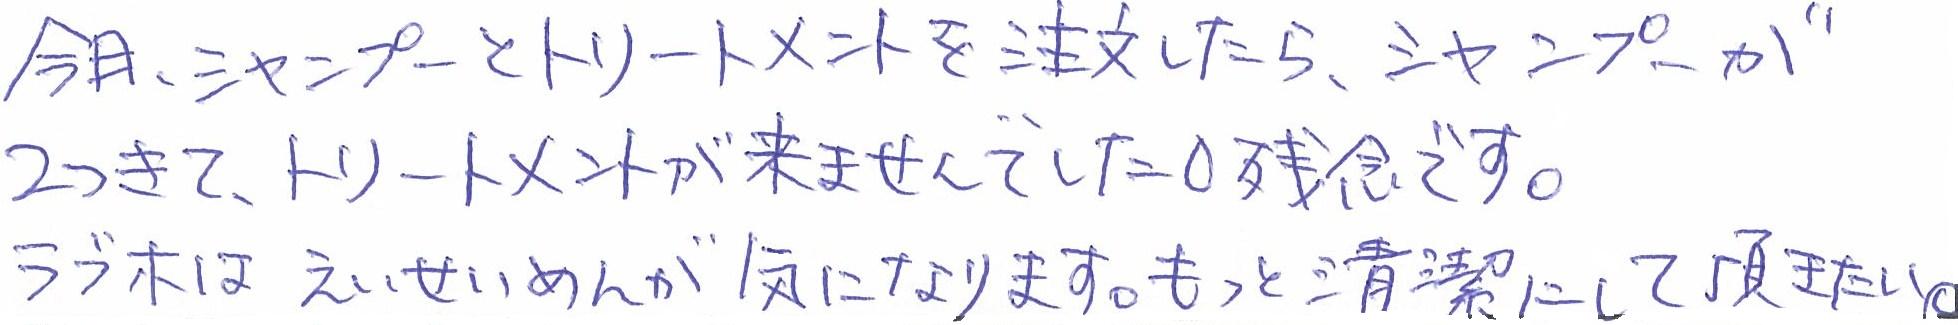 今月、シャンプーとトリートメントを注文したら、シャンプーが
2つきて、トリートメントが来ませんでした。残念です。
ラブホは えいせいめんが気になります。もっと清潔にして頂きたい。